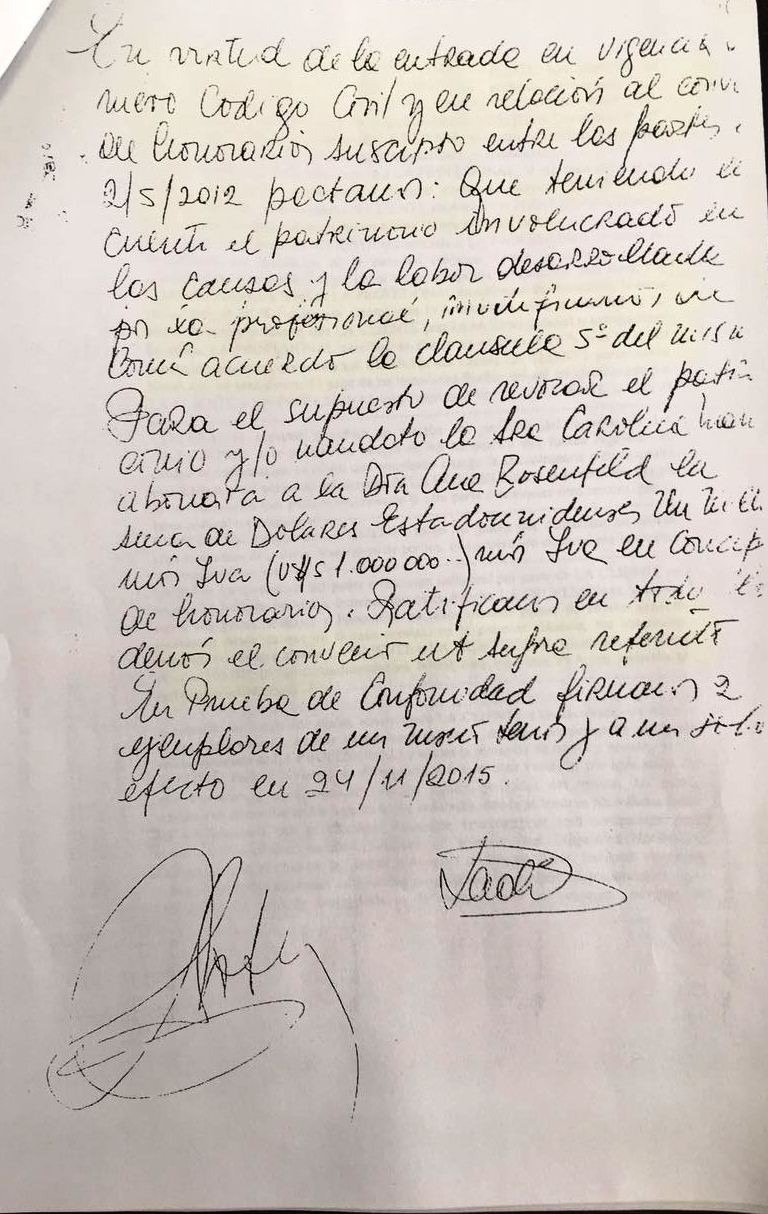 En virtud de la entrada en vigencia
nuevo Codigo Civil y en relación al conv
de honorarios suscripto entre las partes
2/5/2012 pactamos: Que teniendo e
cuenta el patrimonio involucrado en
las causas y la labor desarrollada
por la profesional, modificamos de
Comun acuerdo la clausula 5º del mism
Para el supuesto de revocar el patro
cinio y/o mandato la Sra Carolina
abonará a la Dra Ana Rosenfeld la
suma de Dolares Estadounidenses Un mill
más Iva (U$S 1.000.000.-) más Iva en Concep
de honorarios. Ratificamos en todo lo
demás el convenio ut supra referido
En Prueba de Conformidad firmamos 2
ejemplares de un mismo tenor y a un solo
efecto en 24/11/2015.